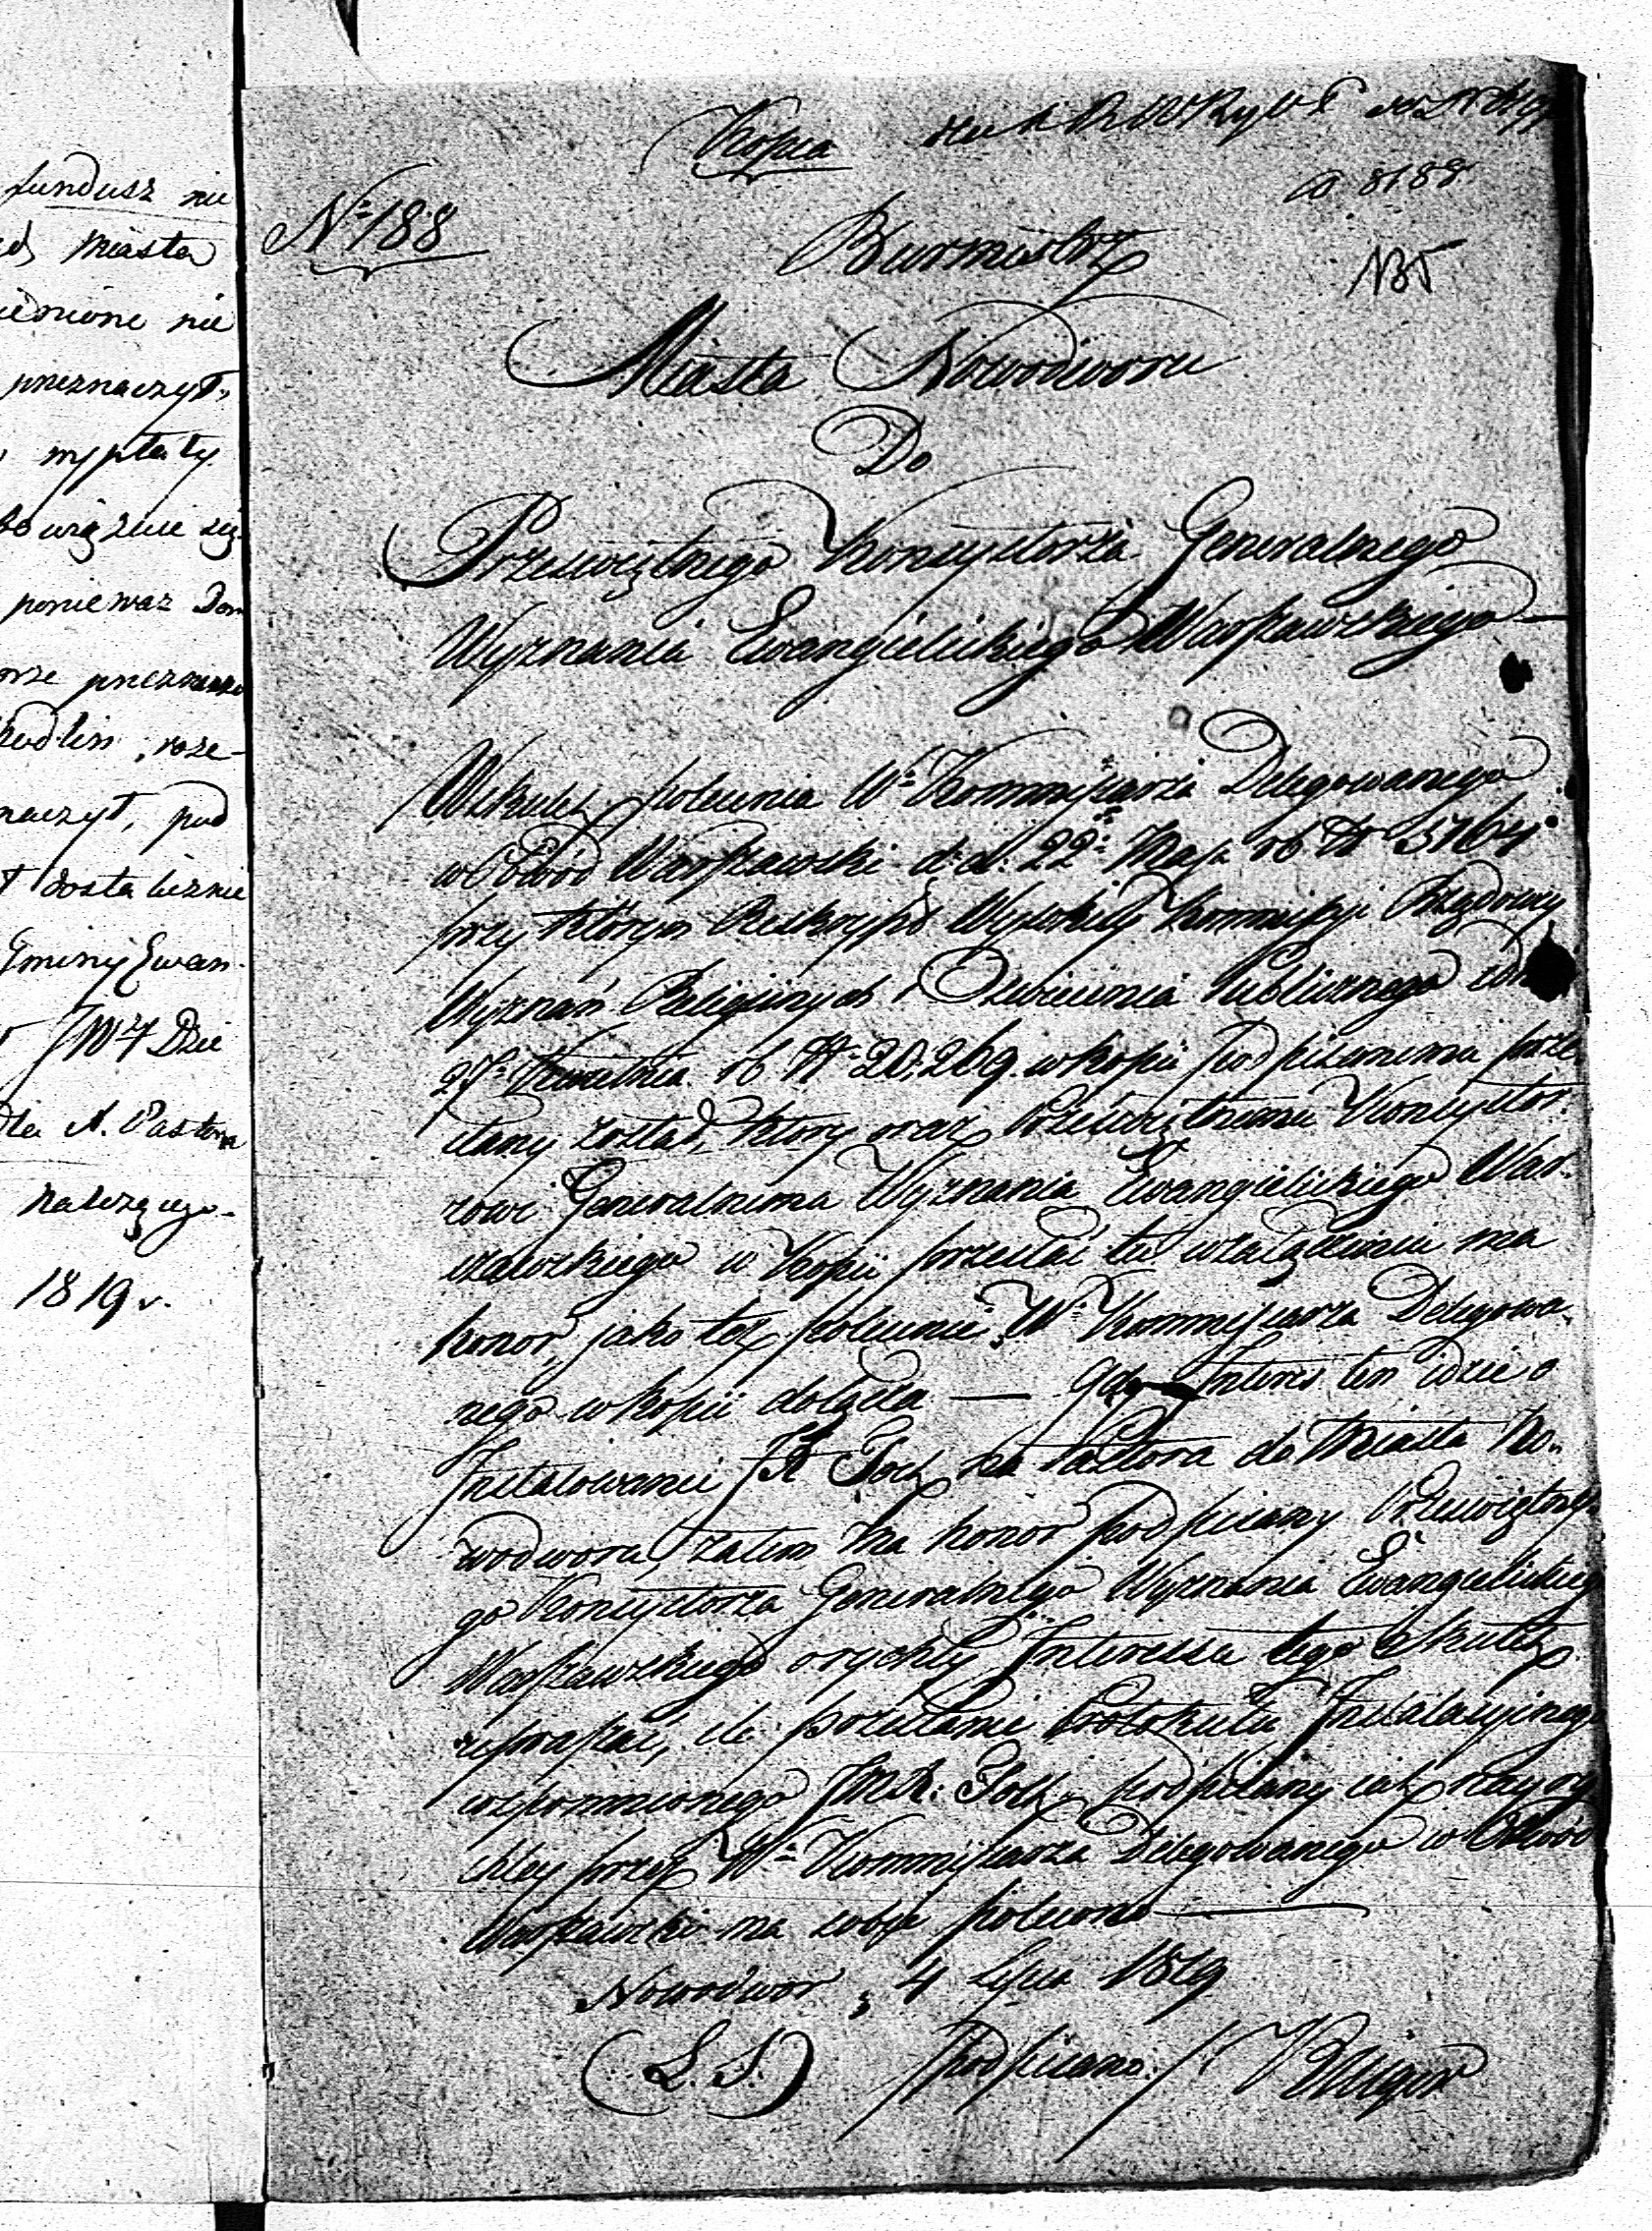 fundusz nie
Miasta
nie
przeznaczył,
wypłaty
ponieważ Dom
naczył, pod
dostatecznie
Gminy Ewan-
JW Dzie
dla A. Pastora
należącego.
1819 r.
Kopia
8188.
No 188
Burmistrz
Miasta Nowodworu
Do
Przeświętnego Konsystorza Generalnego
Wyznania Ewangielickiego Warszawskiego
Wskutek polecenia Wo Kommissarza Delegowanego
w Obwód Warszawski d. d. 22o Maja rb No 5764
przy którym Reskrypt Wysokiey Kommissyi Rządowey
Wyznań Religijnych i Oświecenia Publicznego
27o Kwietnia rb No 20,269. w kopii podpisanemu prze
słany został, który oraz Przeświętnemu Konsystor-
zowi Generalnemu Wyznania Ewangielickiego War-
szawskiego w Kopii przesłać tu w załączeniu ma
honor, jako też polecenie Wo Kommissarza Delegowa-
nego w kopii dołącza — Gdy Interes ten idzie o
Instalowanie JX Toch na Pastora do Miasta No-
wodworu, zatem ma honor podpisany Przeświętne
go Konsystorza Generalnego Wyznania Ewangielickieg
Warszawskiego o rychły Interessa tego skutek
upraszać, ile przesłanie Protokułu Instalacyjnego
wspomnionego JMX. Toch, podpisany iak nayry
chley przez Wo Kommissarza Delegowanego w Obwód
Warszawski ma sobie polecone —
Nowodwór, 4 Lipca 1819
(L. S.) podpisano: